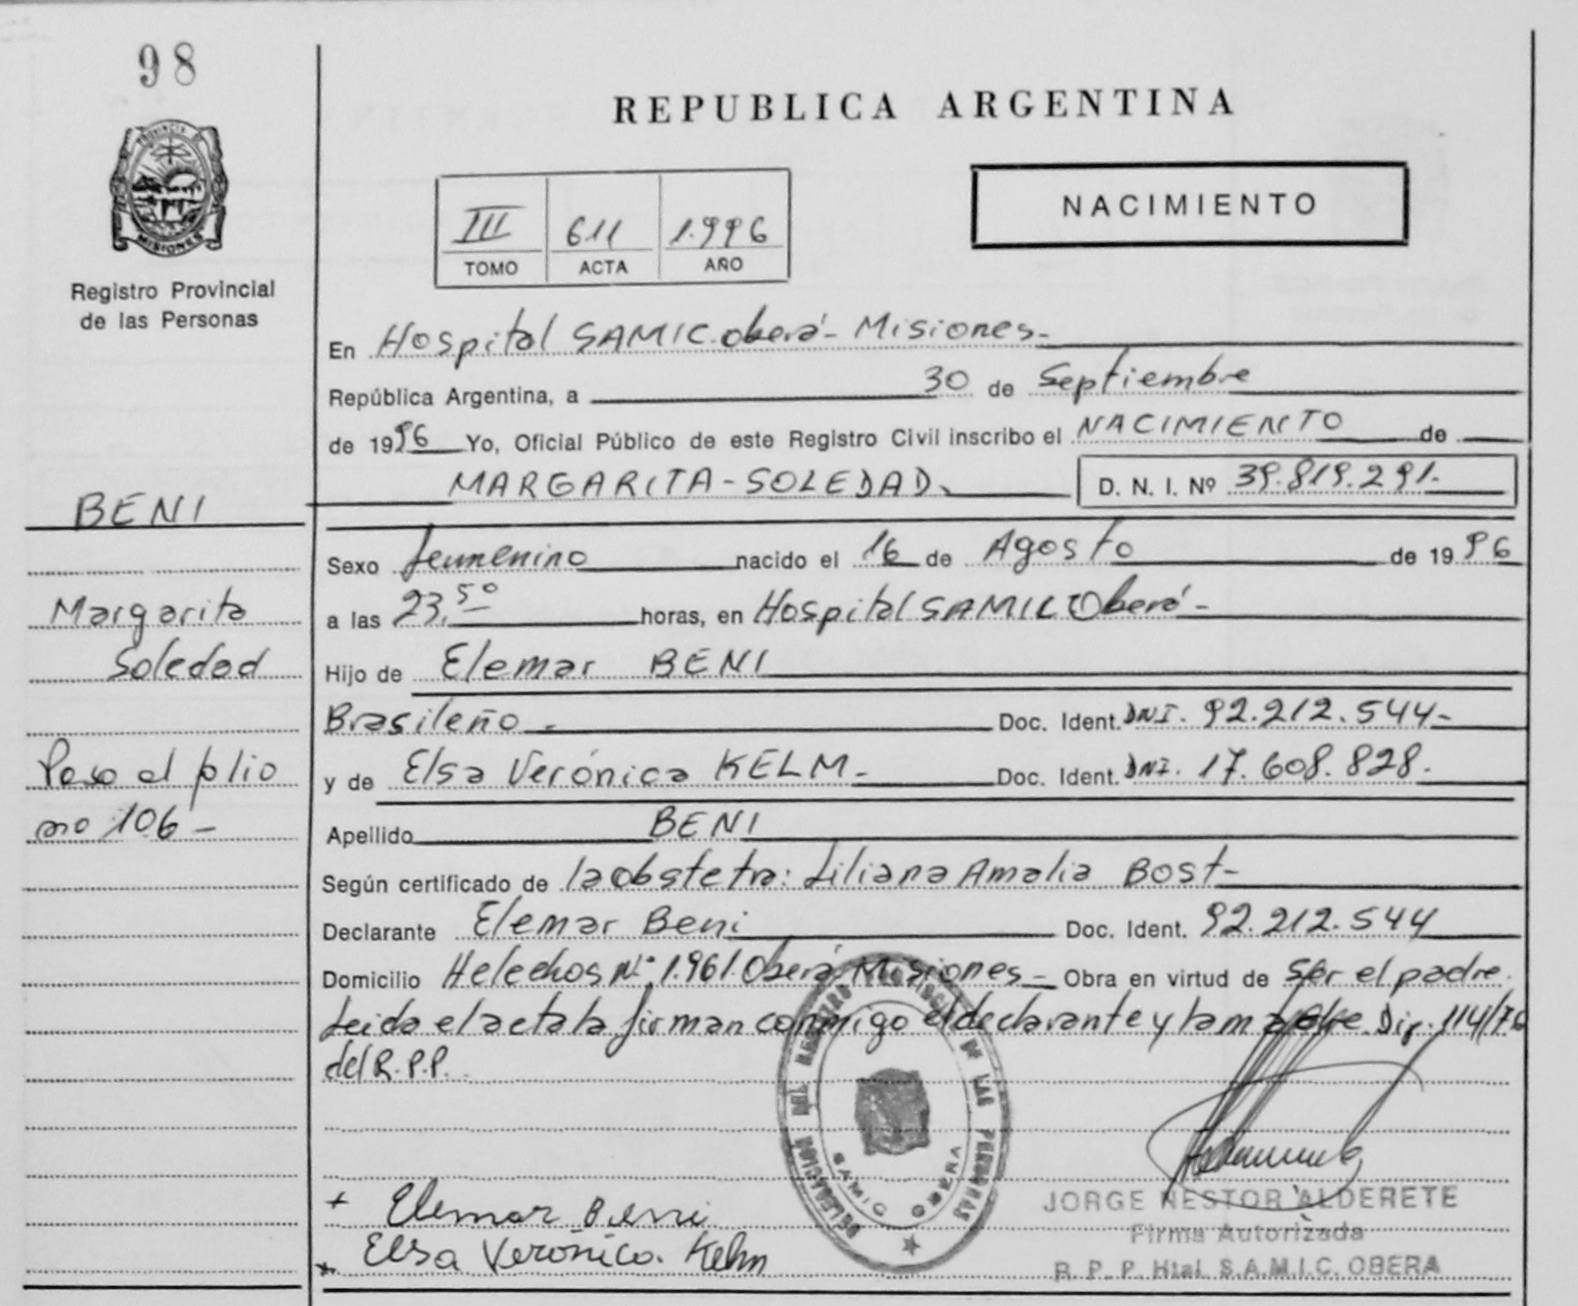 98
PROVINCIA DE
MISIONES
Registro Provincial
de las Personas
REPUBLICA ARGENTINA
III 611 1.996
TOMO ACTA AÑO
NACIMIENTO
En Hospital SAMIC. Oberá - Misiones -
República Argentina, a 30 de Septiembre
de 1996 Yo, Oficial Público de este Registro Civil inscribo el NACIMIENTO de
MARGARITA - SOLEDAD. D. N. I. Nº 39.819.291.
BENI
Sexo femenino nacido el 16 de Agosto de 1996
Margarita
a las 23,50 horas, en Hospital SAMIC Oberá -
Soledad
Hijo de Elemar BENI
Brasileño - Doc. Ident. DNI. 92.212.544 -
Paso al folio
y de Elsa Verónica KELM - Doc. Ident. DNI. 17.608.828.
no 106 -
Apellido BENI
Según certificado de la obstetra: Liliana Amalia Bost -
Declarante Elemar Beni Doc. Ident. 92.212.544
Domicilio Helechos Nº 1.961. Oberá Misiones - Obra en virtud de ser el padre.
Leida el acta la firman conmigo el declarante y la madre. Dis. 114/76
del R.P.P.
DELEGACION DEL REGISTRO PROVINCIAL DE LAS PERSONAS
SAMIC OBERA
+ Elemar Beni
JORGE NESTOR ALDERETE
Firma Autorizada
Elsa Verónica Kelm
R. P. P. Htal. S.A.M.I.C. OBERA